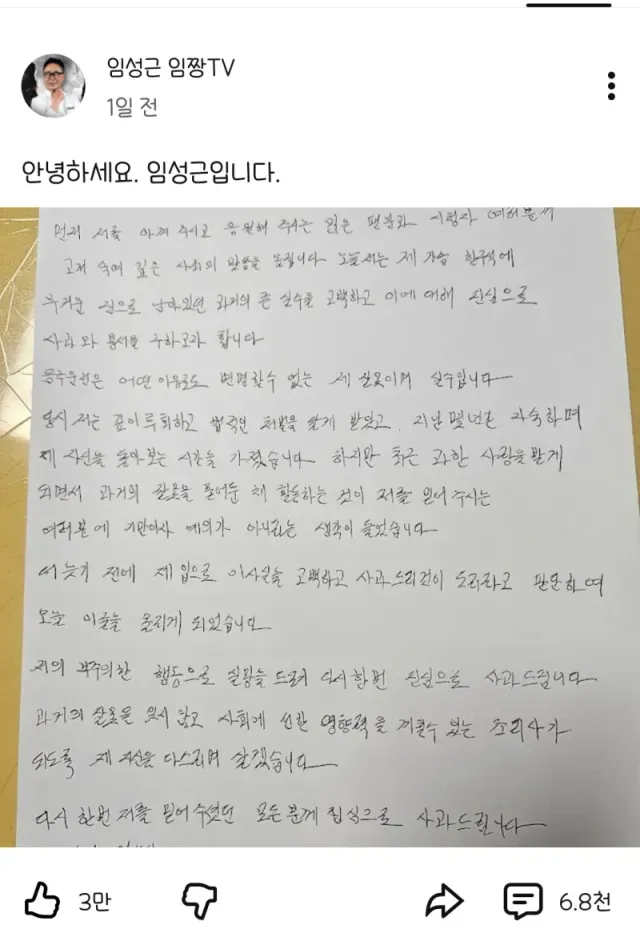 임성근 임짱TV
1일 전
안녕하세요. 임성근입니다.
먼저 저를 아껴 주시고 응원해 주시는 많은 팬분과 시청자 여러분께
고개 숙여 깊은 사죄의 말씀을 올립니다 오늘서는 제 가슴 한구석에
무거운 짐으로 남아있던 과거의 큰 실수를 고백하고 이에 대해 진심으로
사과와 용서를 구하고자 합니다
음주운전은 어떤 이유로도 변명할수 없는 제 잘못이며 실수입니다
당시 저는 깊이 후회하고 법적인 처벌을 달게 받았고, 지난 몇년간 자숙하며
제 자신을 돌아보는 시간을 가졌습니다 하지만 최근 과한 사랑을 받게
되면서 과거의 잘못을 묻어둔 채 활동하는 것이 저를 믿어 주시는
여러분에 기만이자 예의가 아니라는 생각이 들었습니다
더 늦기 전에 제 입으로 이사실을 고백하고 사과드리는것이 도리라고 판단하여
오늘 이글을 올리게 되었습니다
저의 부주의한 행동으로 실망을 드려 다시한번 진심으로 사과드립니다
과거의 잘못을 잊지 않고 사회에 선한 영향력을 끼칠수 있는 조리사가
되도록 제 자신을 다스리며 살겠습니다
다시 한번 저를 믿어 주셨던 모든 분께 진심으로 사과드립니다
3만
6.8천